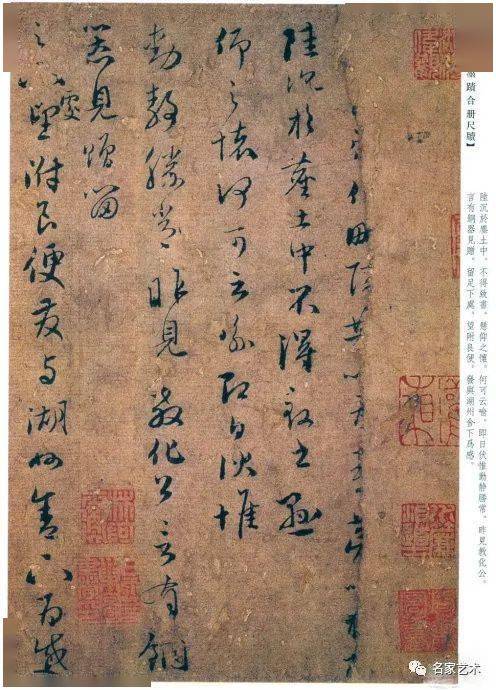 蹟合册尺牘】
陸沉於塵土中，不得致書，懸仰之懷，何可云喻，即日伏惟動静勝常，昨見教化公，
言有銅器見贈，留足下處，望附良便，發與湖州舍下爲感。
陸沉於塵土中不得致書懸
仰之懷何可云喻即日伏惟
動静勝常昨見教化公言有銅
器見贈留
足下處望附良便發与湖州舍下为感
名家艺术